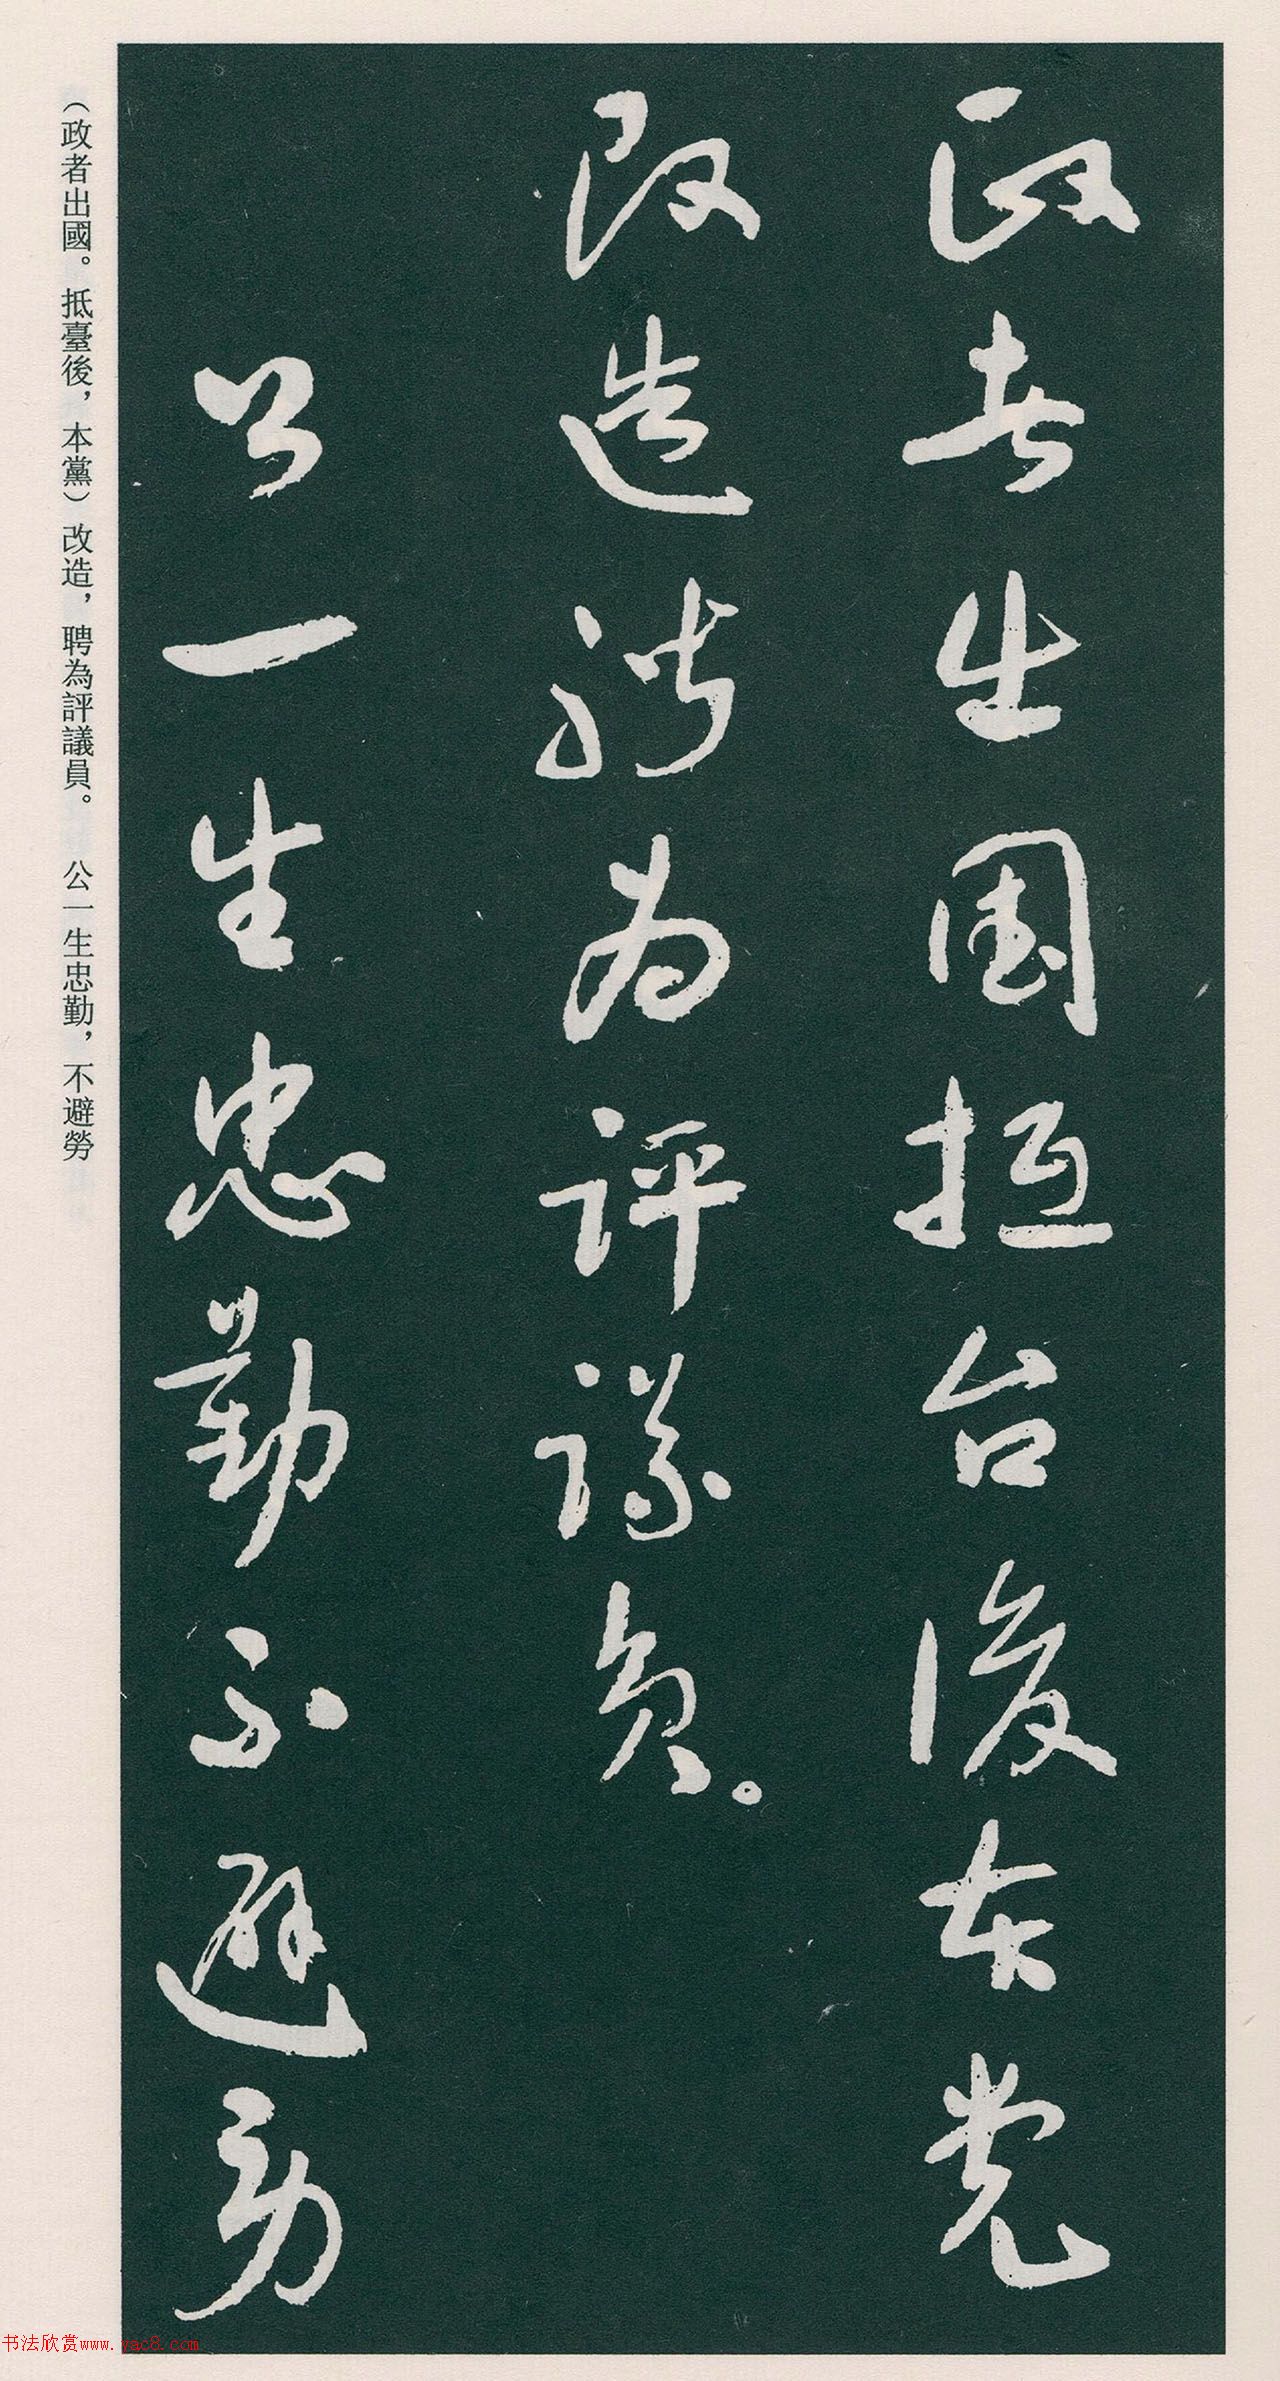 政者出国抵台後本党
改造聘为評議员。
公一生忠勤不避劳
（政者出國。抵臺後，本黨）改造，聘為評議員。 公一生忠勤，不避勞
书法欣赏www.yac8.com